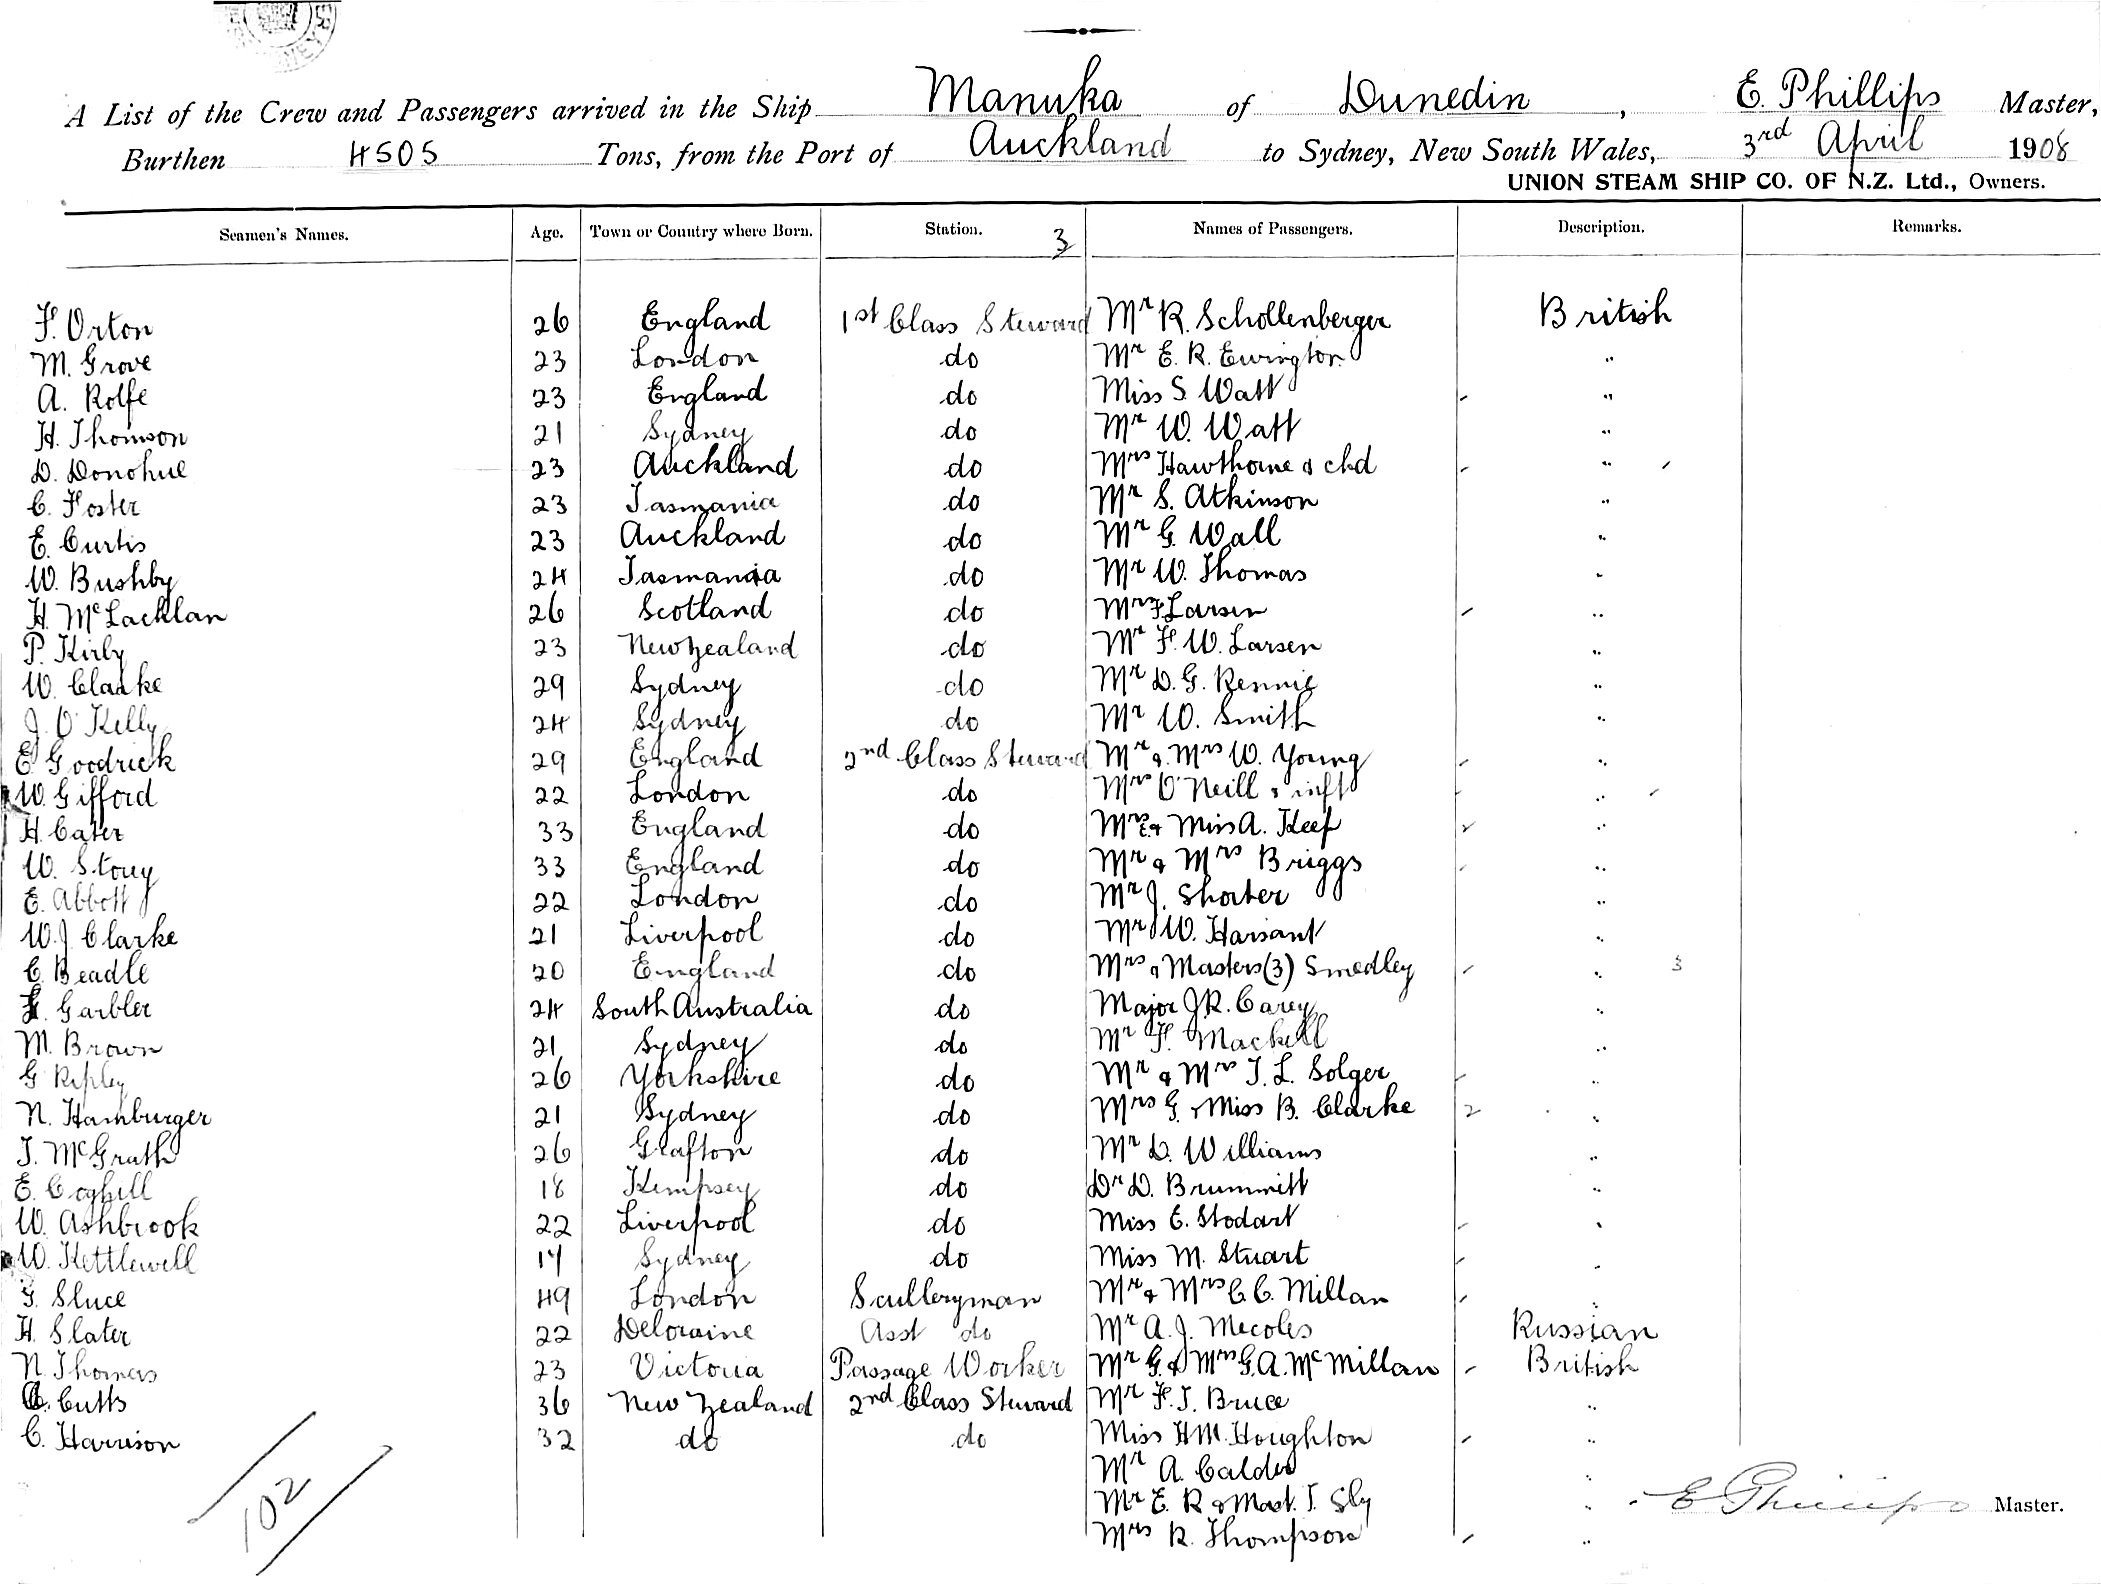 A List of the Crew and Passengers arrived in the Ship Manuka of Dunedin, E. Phillips Master,
Burthen 4505 Tons, from the Port of Auckland to Sydney, New South Wales, 3rd April 1908
UNION STEAM SHIP CO. OF N.Z. Ltd., Owners.
Seamen's Names. Age. Town or Country where Born. Station. 3 Names of Passengers. Description. Remarks.
F. Orton 26 England 1st Class Steward Mr R. Schollenberger British
M. Grove 23 London do Mr E. R. Ewington "
A. Rolfe 23 England do Miss S. Watt "
H. Thomson 21 Sydney do Mr W. Watt "
D. Donohue 23 Auckland do Mrs Hawthorne & chd "
C. Foster 23 Tasmania do Mr S. Atkinson "
E. Curtis 23 Auckland do Mr G. Wall "
W. Bushby 24 Tasmania do Mr W. Thomas "
H. McLacklan 26 Scotland do Mrs F Larsen "
P. Kirby 23 New Zealand do Mr F. W. Larsen "
W. Clarke 29 Sydney do Mr D. G. Rennie "
J. O'Kelly 24 Sydney do Mr W. Smith "
E. Goodrick 29 England 2nd Class Steward Mr & Mrs W. Young "
W. Gifford 22 London do Mrs O'Neill & inft "
H. Cater 33 England do Mrs E. & Miss A. Keef "
W. Storey 33 England do Mr & Mrs Briggs "
E. Abbott 22 London do Mr J. Shorter "
W. J. Clarke 21 Liverpool do Mr W. Harsant "
C. Beadle 20 England do Mrs & Masters (3) Smedley " 3
Garbler 24 South Australia do Major J. R. Carey "
M. Brown 21 Sydney do Mr F. Mackell "
G Ripley 26 Yorkshire do Mr & Mrs T. L. Solger "
N. Hamburger 21 Sydney do Mrs G. & Miss B. Clarke 2 "
J. McGrath 26 Grafton do Mr D. Williams "
E. Coghill 18 Kempsey do Dr D. Brummitt "
W. Ashbrook 22 Liverpool do Miss E. Stodart "
W. Kettlewell 17 Sydney do Miss M. Stuart "
G. Sluce 49 London Sculleryman Mr & Mrs C. C. Millan "
H. Slater 22 Deloraine Asst do Mr A. J. Mecoles Russian
N. Thomas 23 Victoria Passage Worker Mr G. & Mrs G. A. McMillan British
C. Cutts 36 New Zealand 2nd Class Steward Mr F. J. Bruce "
C. Harrison 32 do do Miss H M. Houghton "
Mr A. Calder "
102 Mr E. R & Mast. T. Sly " E Phillips Master.
Mrs R. Thompson "